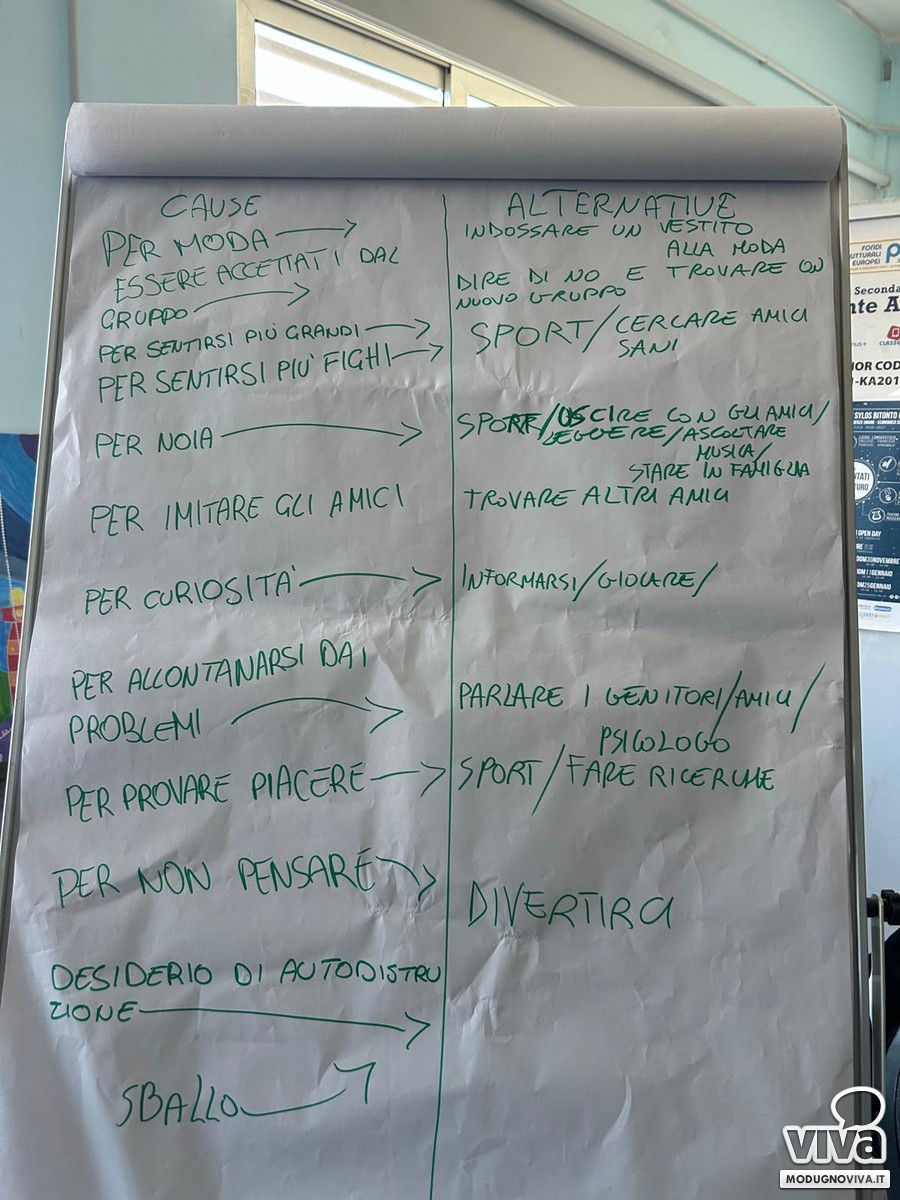 CAUSE
PER MODA
ESSERE ACCETTATI DAL
GRUPPO
PER SENTIRSI PIÙ GRANDI
PER SENTIRSI PIÙ FIGHI
PER NOIA
PER IMITARE GLI AMICI
PER CURIOSITÀ
PER ALLONTANARSI DAI
PROBLEMI
PER PROVARE PIACERE
PER NON PENSARE
DESIDERIO DI AUTODISTRU
ZIONE
SBALLO
ALTERNATIVE
INDOSSARE UN VESTITO
ALLA MODA
DIRE DI NO E TROVARE UN
NUOVO GRUPPO
SPORT/CERCARE AMICI
SANI
SPORT/USCIRE CON GLI AMICI/
LEGGERE/ASCOLTARE
MUSICA/
STARE IN FAMIGLIA
TROVARE ALTRI AMICI
INFORMARSI/GIOCARE/
PARLARE I GENITORI/AMICI/
PSICOLOGO
SPORT/FARE RICERCHE
DIVERTIRCI
FONDI
EUROPEI
Seconda
SYLOS BITONTO
OPEN DAY
30NOVEMBRE
11GENNAIO
25GENNAIO
viva
MODUGNOVIVA.IT